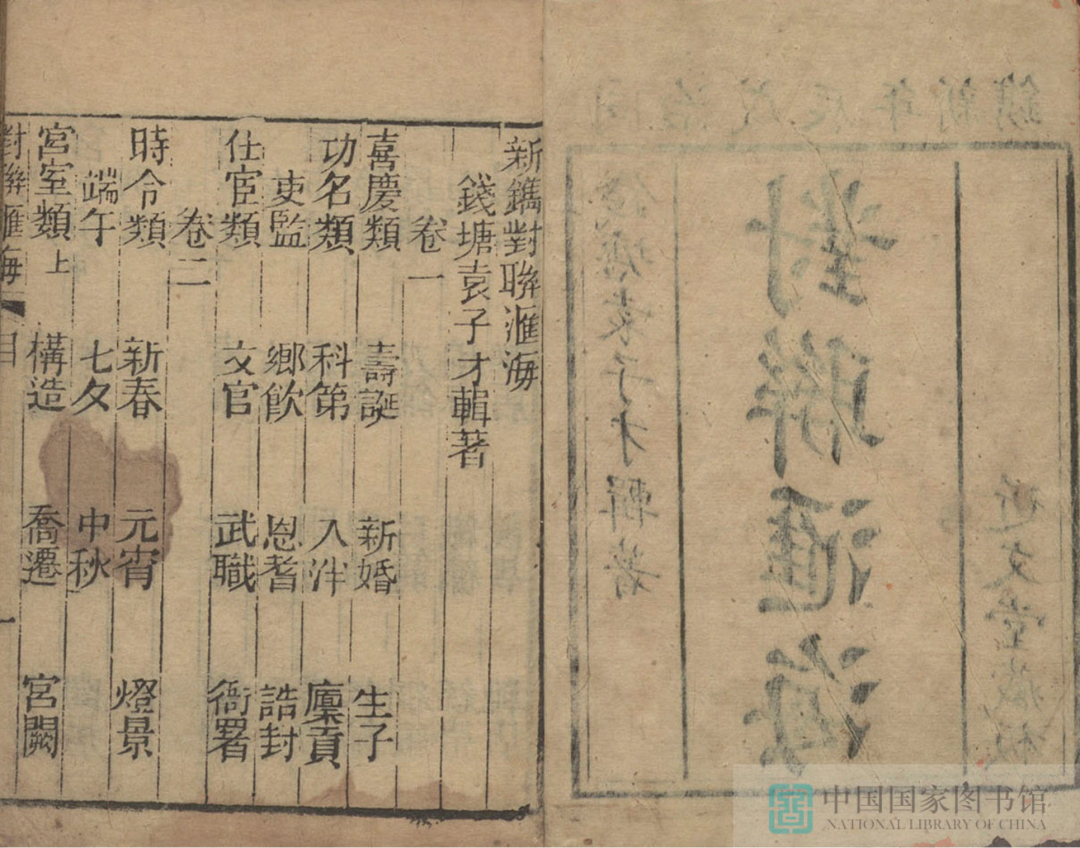 同治戊辰年新鐫
近文堂藏板
對聯滙海
錢塘袁子才輯著
新鐫對聯滙海
錢塘袁子才輯著
卷一
喜慶類 壽誕 新婚 生子
功名類 科第 入泮 廩貢
吏監 鄉飲 恩耆 誥封
仕宦類 文官 武職 衙署
卷二
時令類 新春 元宵 燈景
端午 七夕 中秋
宮室類上 構造 喬遷 宮闕
對聯滙海 目 一
中国国家图书馆
NATIONAL LIBRARY OF CHINA